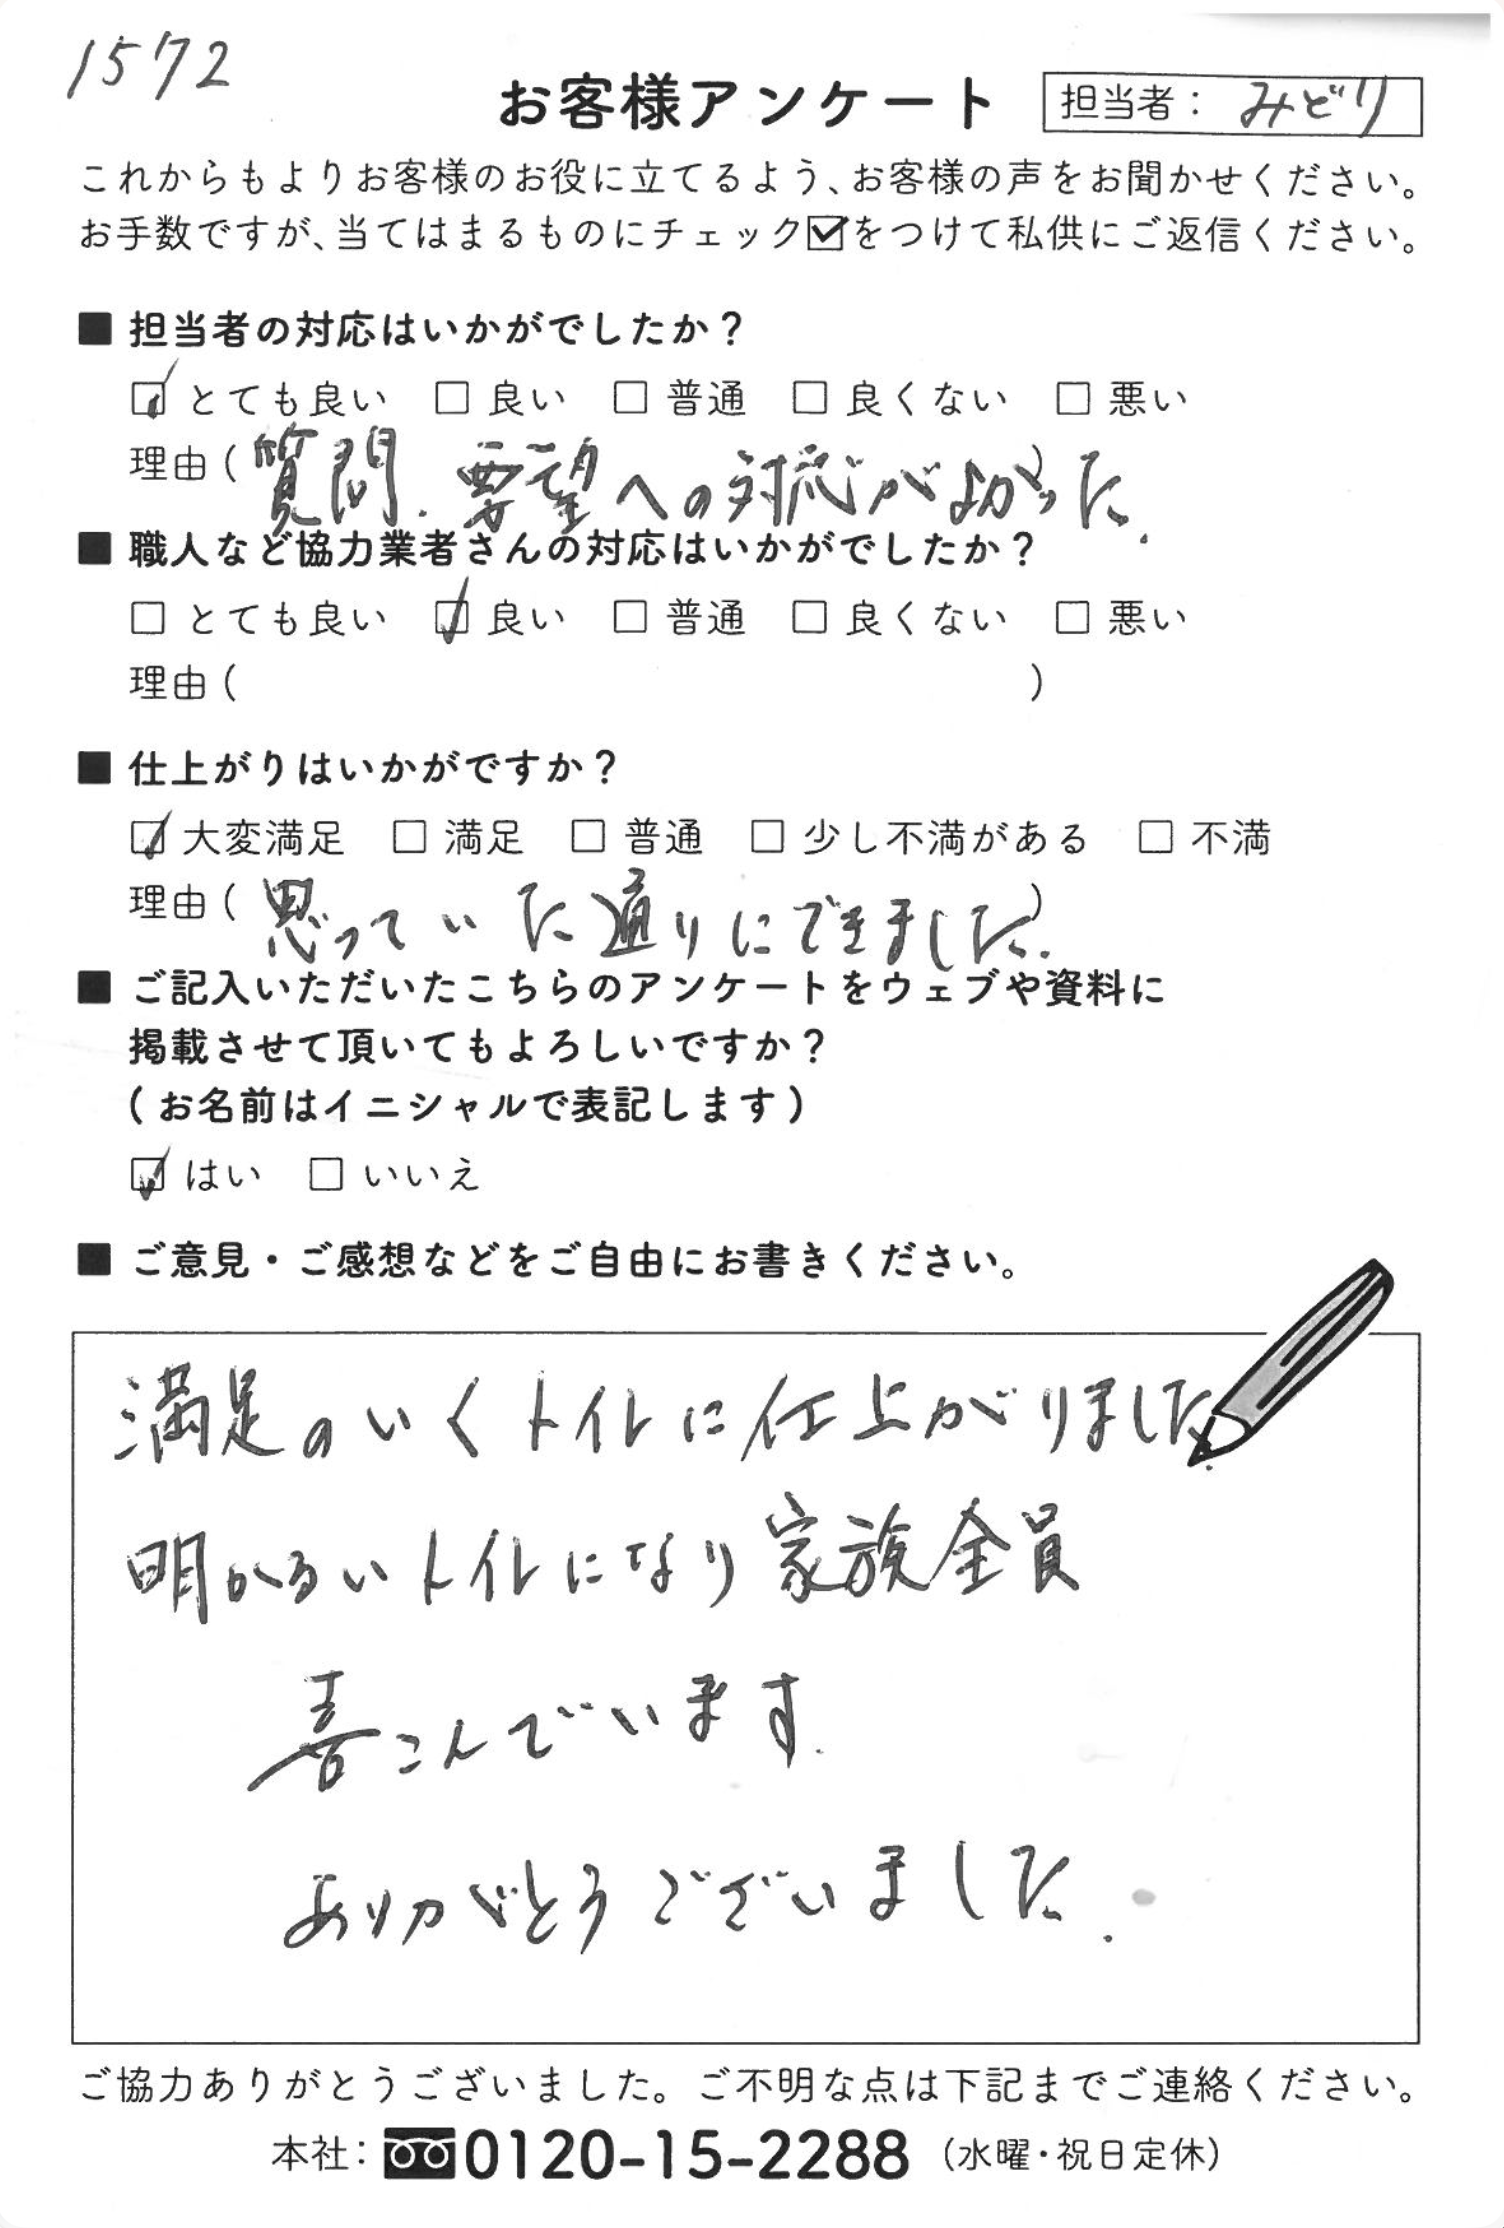 1572
お客様アンケート 担当者： みどり
これからもよりお客様のお役に立てるよう、お客様の声をお聞かせください。
お手数ですが、当てはまるものにチェック☑をつけて私供にご返信ください。
■ 担当者の対応はいかがでしたか？
☑ とても良い □ 良い □ 普通 □ 良くない □ 悪い
理由（質問.要望への対応がよかった.）
■ 職人など協力業者さんの対応はいかがでしたか？
□ とても良い ☑ 良い □ 普通 □ 良くない □ 悪い
理由（ ）
■ 仕上がりはいかがですか？
☑ 大変満足 □ 満足 □ 普通 □ 少し不満がある □ 不満
理由（思っていた通りにできました.）
■ ご記入いただいたこちらのアンケートをウェブや資料に
掲載させて頂いてもよろしいですか？
（お名前はイニシャルで表記します）
☑ はい □ いいえ
■ ご意見・ご感想などをご自由にお書きください。
満足のいくトイレに仕上がりました.
明かるいトイレになり家族全員
喜こんでいます.
ありがとうございました.
ご協力ありがとうございました。ご不明な点は下記までご連絡ください。
本社：0120-15-2288（水曜・祝日定休）